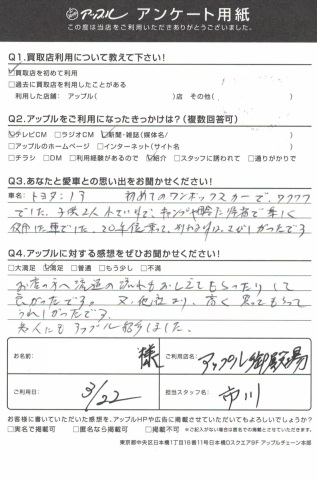 アップル アンケート用紙
この度は当店をご利用いただきありがとうございました。
Q1.買取店利用について教えて下さい!
☑買取店を初めて利用
□過去に買取店を利用したことがある
利用した店舗: アップル( )店 その他( )
Q2.アップルをご利用になったきっかけは?(複数回答可)
☑テレビCM □ラジオCM ☑新聞・雑誌(媒体名/ )
□アップルのホームページ □インターネット(サイト名 )
□チラシ □DM □利用経験があるので ☑紹介 □スタッフに誘われて □通りがかりで
Q3.あなたと愛車との思い出をお聞かせください!
車名: トヨタ: 初めてのワンボックスカーで、ワクワク
でした。子供2人
使用した車でした。20年位乗って、わかれは、さびしかったです
Q4.アップルに対する感想をぜひお聞かせください!
□大満足 ☑満足 □普通 □もう少し □不満
お店の方へ流通の流れもおしえてもらったりして
良かったです。又、他社より、高く買ってもらって
うれしかったです。
友人にもアップル紹介しました。
お名前: 様
ご利用店名: アップル御殿場
ご利用日: 3/22
担当スタッフ名: 市川
お客様に書いていただいた感想を、アップルHPや広告に掲載させていただいてもよろしいでしょうか?
□実名で掲載可 □匿名なら掲載可 □掲載不可 ※ご記入がない場合は匿名での掲載とさせていただきます。
東京都中央区日本橋1丁目16番11号日本橋Dスクエア9F アップルチェーン本部